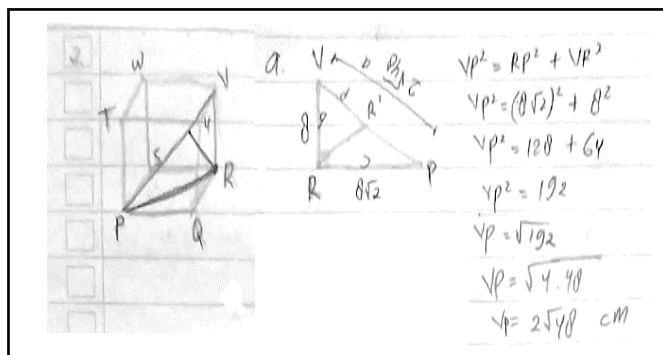 2.
W
V
T
4
S
R
P
Q
a.
V
R'
8
R
8√2
P
VP² = RP² + VR²
VP² = (8√2)² + 8²
VP² = 128 + 64
VP² = 192
VP = √192
VP = √4.48
VP = 2√48 cm